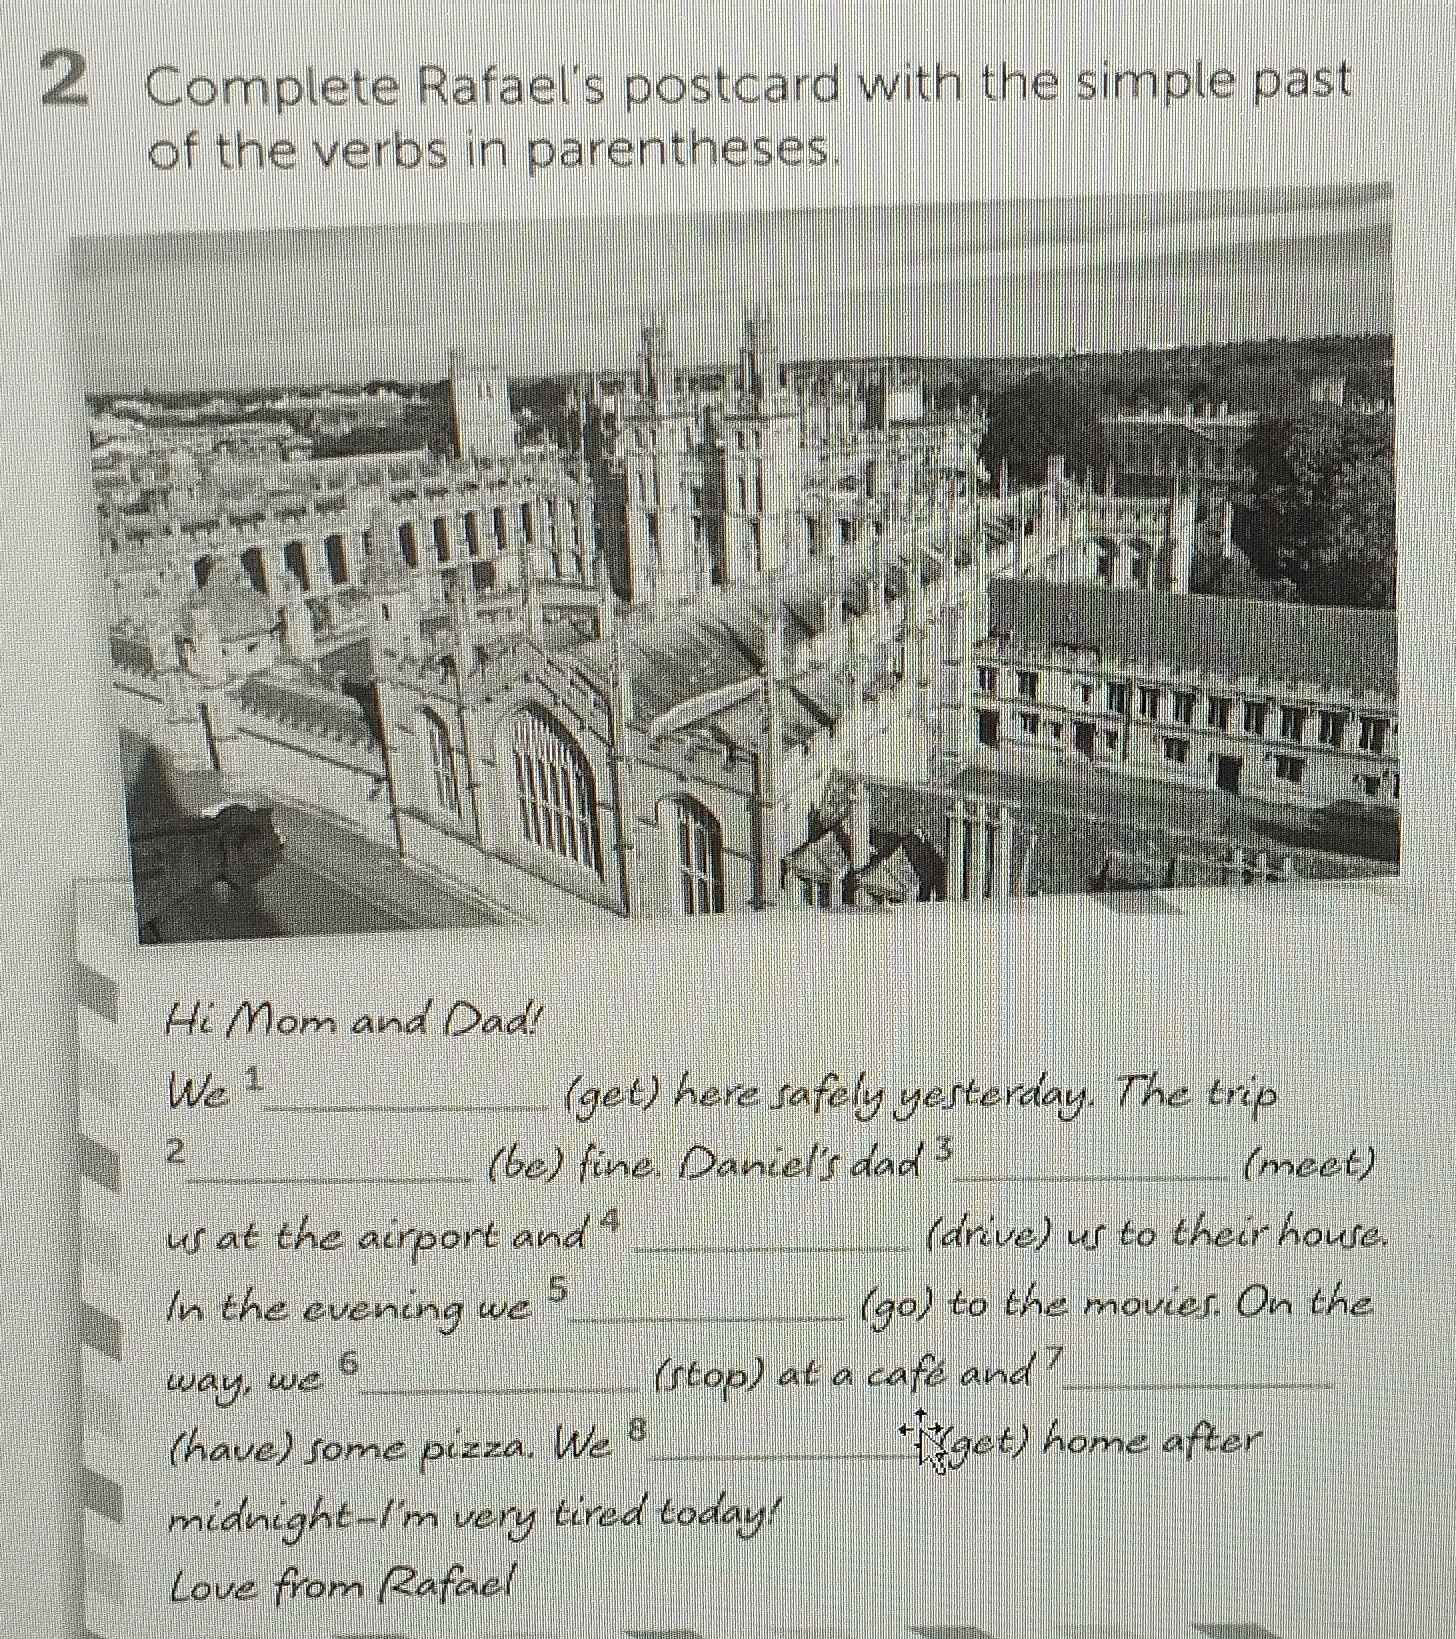 2 Complete Rafael's postcard with the simple past
of the verbs in parentheses.
Hi Mom and Dad!
We 1 ____________ (get) here safely yesterday. The trip
2 ____________ (be) fine. Daniel's dad 3 ____________ (meet)
us at the airport and 4 ____________ (drive) us to their house.
In the evening we 5 ____________ (go) to the movies. On the
way, we 6 ____________ (stop) at a café and 7 ____________
(have) some pizza. We 8 ____________ (get) home after
midnight–I'm very tired today!
Love from Rafael